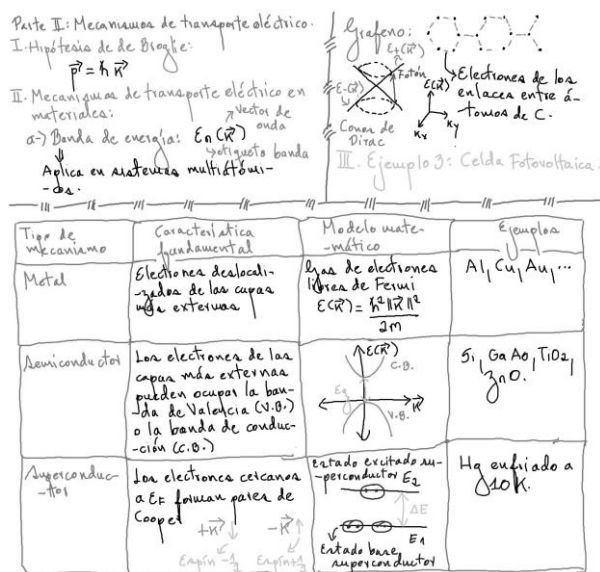 Parte II: Mecanismos de transporte eléctrico.
I. Hipótesis de de Broglie:
p⃗ = ħ k⃗
II. Mecanismos de transporte eléctrico en
materiales:
vector de
onda
a-) Banda de energía: εn(k⃗)
etiqueta banda
Aplica en sistemas multiatómi-
-dos.
Grafeno:
ε+(k⃗)
Fotón
ε-(k⃗)
ω
Conos de
Dirac
ε(k⃗)
kx
ky
Electrones de los
enlaces entre á-
tomos de C.
III. Ejemplo 3: Celda Fotovoltaica.
Tipo de
mecanismo
Característica
fundamental
Modelo mate-
-mático
Ejemplos
Metal
Electrones deslocali-
-zados de las capas
más externas
Gas de electrones
libres de Fermi
ε(k⃗) = ħ² ||k⃗||²
2m
Al, Cu, Au, ...
Semiconductor
Los electrones de las
capas más externas
pueden ocupar la ban-
da de Valencia (V.B.)
o la banda de conduc-
-ción (C.B.)
ε(k⃗)
C.B.
Eg
k⃗
V.B.
Si, GaAo, TiO2,
ZnO.
Superconduc-
-tor
Los electrones cercanos
a EF forman pares de
Cooper
+k⃗
-k⃗
Espín -½
Espín +½
Estado excitado su-
-perconductor E2
ΔE
E1
Estado base
superconductor
Hg enfriado a
10K.